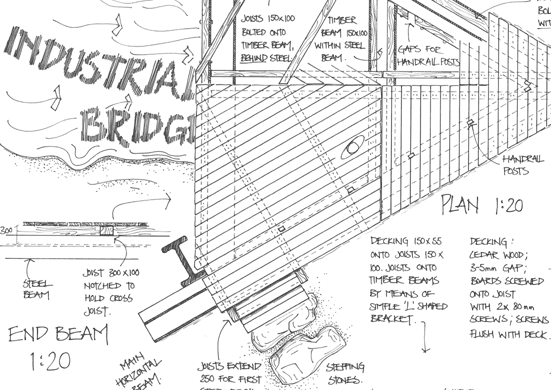 INDUSTRIAL
BRIDGE
JOISTS 150x100
BOLTED ONTO
TIMBER BEAM,
BEHIND STEEL
TIMBER
BEAM 150x100
WITHIN STEEL
BEAM.
GAPS FOR
HANDRAIL POSTS
HANDRAIL
POSTS
PLAN 1:20
300
STEEL
BEAM
JOIST 300x100
NOTCHED TO
HOLD CROSS
JOIST.
END BEAM
1:20
MAIN
HORIZONTAL
BEAM.
JOISTS EXTEND
250 FOR FIRST
STEPPING
STONES.
DECKING 150x55
ONTO JOISTS 150x
100. JOISTS ONTO
TIMBER BEAMS
BY MEANS OF
SIMPLE 'L' SHAPED
BRACKET.
DECKING:
CEDAR WOOD;
3-5mm GAP;
BOARDS SCREWED
ONTO JOIST
WITH 2x 80mm
SCREWS; SCREWS
FLUSH WITH DECK.